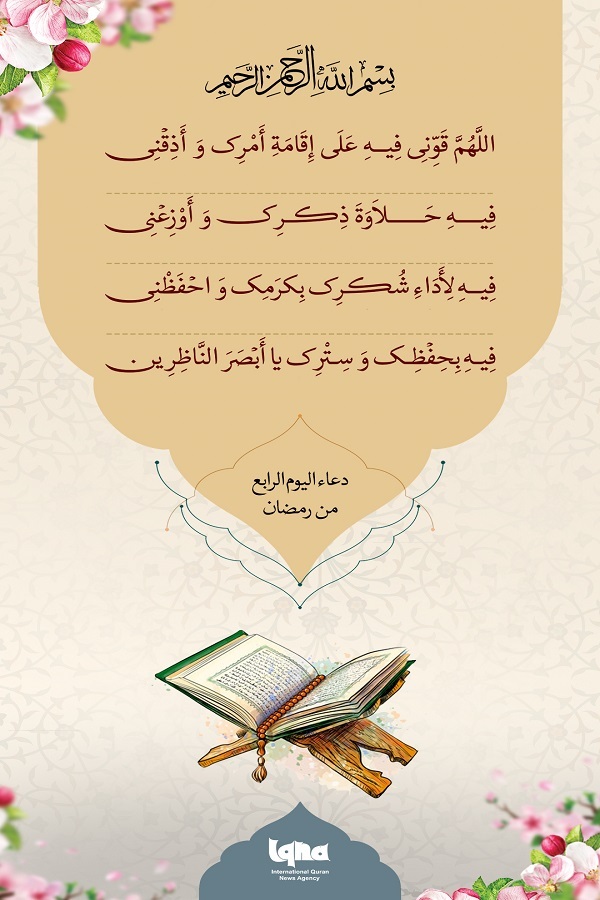 بِسْمِ اللَّهِ الرَّحْمَنِ الرَّحِيمِ
اللَّهُمَّ قَوِّنِی فِیـــهِ عَلَى إِقَامَةِ أَمْرِک وَ أَذِقْنِی
فِیـــهِ حَــــلاَوَةَ ذِکــــرِک وَ أَوْزِعْنِی
فِیـهِ لِأَدَاءِ شُـــکــرِک بِکَرَمِک وَ احْفَظْنِی
فِیـهِ بِحِفْظِـک وَ سِتْرِک یا أَبْصَرَ النَّاظِرِین
دعاء الیوم الرابع
من رمضان
Iqna
International Quran
News Agency